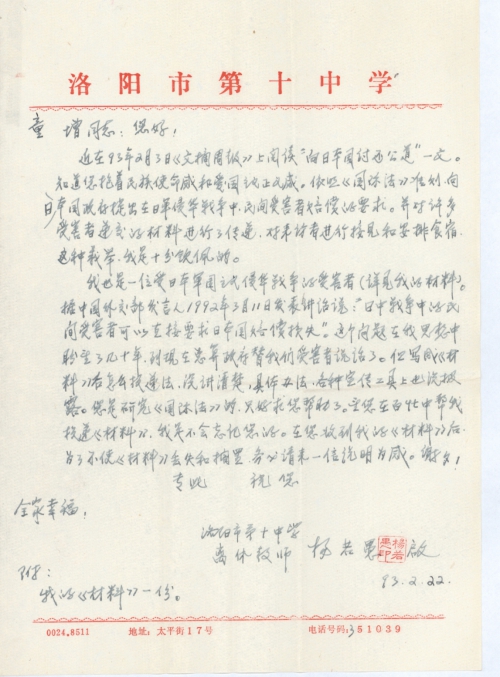 洛阳市第十中学
童增同志：您好！
近在93年2月3日《文摘周报》上阅读“向日本国讨还公道”一文。
知道您抱着民族使命感和爱国的正义感。依照《国际法》准则，向
日本国政府提出在日军侵华战争中，民间受害者赔偿的要求。并对许多
受害者递交的材料进行了传递，对来访者进行接见和安排食宿，
这种义举，我是十分钦佩的。
我也是一位受日本军国主义侵华战争的受害者（详见我的材料）。
据中国外交部发言人1992年3月11日发表讲话说：“日中战争中的民
间受害者可以直接要求日本国赔偿损失”。这个问题在我思想中
盼望了几十年，到现在总算政府替我们受害者说话了。但写成《材
料》后怎么投递法，没讲清楚，具体办法，各种宣传工具上也没披
露。您是研究《国际法》的，只好求您帮助了。望您在百忙中帮我
投递《材料》，我是不会忘记您的。在您收到我的《材料》后
为了不使《材料》丢失和搁置，务必请来一信说明为感。谢谢！
专此 祝您
全家幸福！
洛阳市第十中学
离休教师 杨若愚 启
杨若愚印
93.2.22.
附：
我的《材料》一份。
0024.8511 地址：太平街17号 电话号码：351039